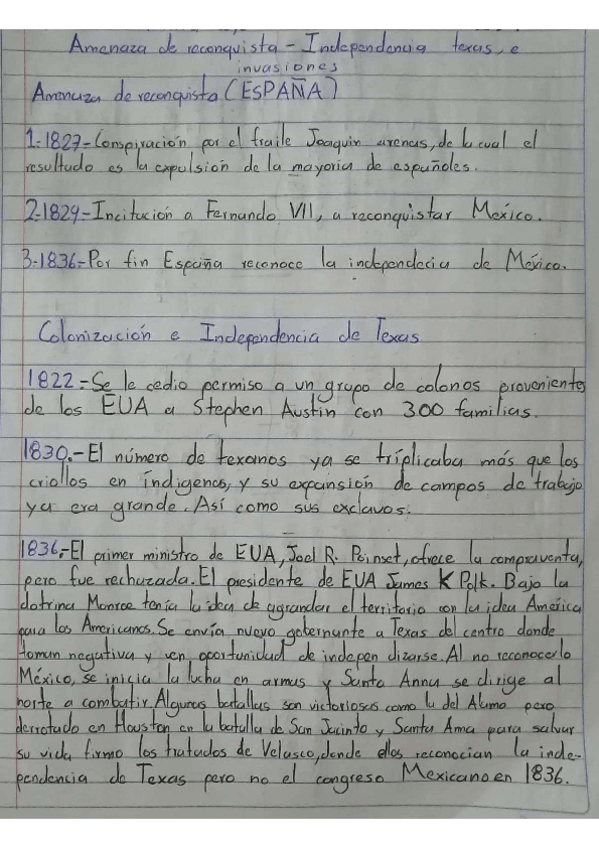 Amenaza de reconquista - Independencia texas, e
invasiones
Amenaza de reconquista (ESPAÑA)
1.-1827-Conspiración por el fraile Joaquin arenas, de la cual el
resultado es la expulsión de la mayoria de españoles.
2.-1829-Incitución a Fernando VII, a reconquistar México.
3.-1836.-Por fin España reconoce la independecia de México.
Colonización e Independencia de Texas
1822.-Se le cedio permiso a un grupo de colonos provenientes
de los EUA a Stephen Austin con 300 familias.
1830.-El número de texanos ya se tríplicaba más que los
criollos en índigenas, y su expansión de campos de trabajo
ya era grande. Así como sus exclavos.
1836.-El primer ministro de EUA, Joel R. Poinset, ofrece la compraventa,
pero fue rechazada. El presidente de EUA James K Polk. Bajo la
dotrina Monroe tenía la idea de agrandar el territorio con la idea América
para los Americanos. Se envía nuevo gobernante a Texas del centro donde
toman negativa y ven oportunidad de indepen dizarse. Al no reconocerlo
México, se inicia la lucha en armas y Santa Anna se dirige al
norte a combatir. Algunas batallas son victoriosas como la del Alamo pero
derrotado en Houston en la batalla de San Jacinto y Santa Ama para salvar
su vida firmo los tratados de Velasco, donde ellos reconocian la inde-
pendencia de Texas pero no el congreso Mexicano en 1836.